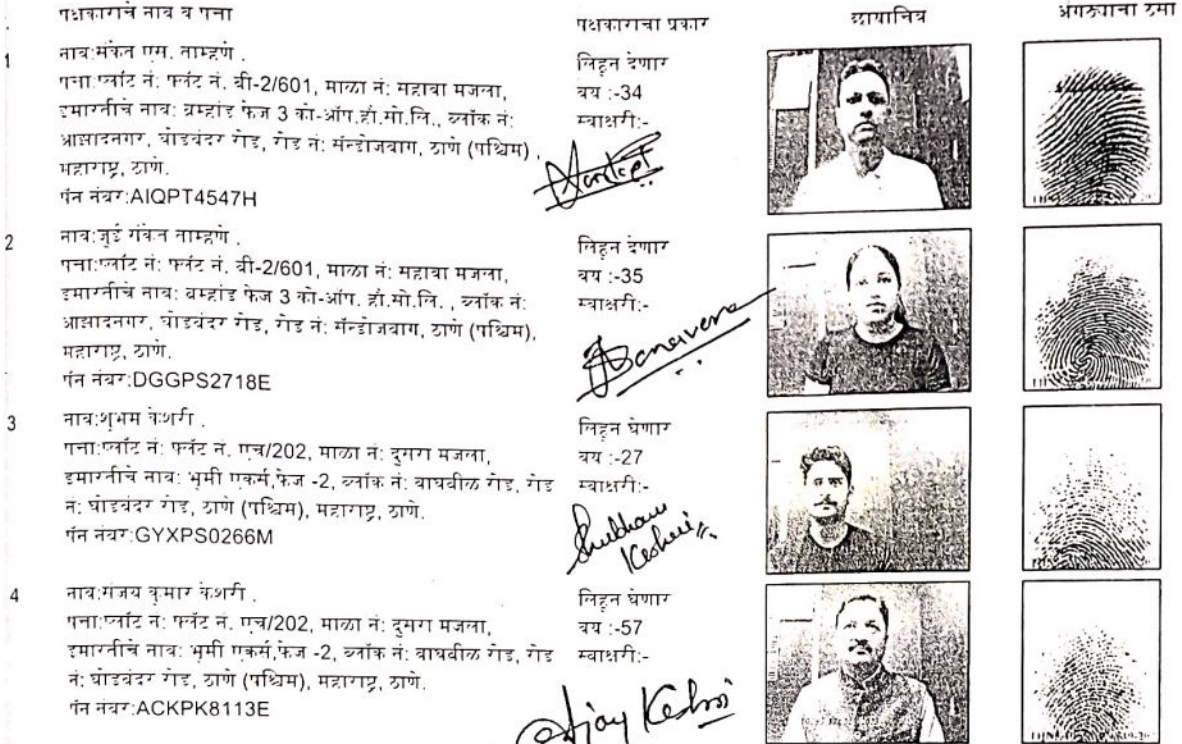 पक्षकाराचे नाव व पत्ता
पक्षकाराचा प्रकार
छायाचित्र
अंगठ्याचा ठसा
1
नाव:संकेत एस. ताम्हणे .
पत्ता:प्लॉट नं: फ्लॅट नं. बी-2/601, माळा नं: सहावा मजला,
इमारतीचे नाव: ब्रम्हांड फेज 3 को-ऑप.हौ.सो.लि., ब्लॉक नं:
आझादनगर, घोडबंदर रोड, रोड नं: सॅन्डोजबाग, ठाणे (पश्चिम) ,
महाराष्ट्र, ठाणे.
पॅन नंबर:AIQPT4547H
लिहून देणार
वय :-34
स्वाक्षरी:-
2
नाव:जुई संकेत ताम्हणे .
पत्ता:प्लॉट नं: फ्लॅट नं. बी-2/601, माळा नं: सहावा मजला,
इमारतीचे नाव: ब्रम्हांड फेज 3 को-ऑप. हौ.सो.लि. , ब्लॉक नं:
आझादनगर, घोडबंदर रोड, रोड नं: सॅन्डोजबाग, ठाणे (पश्चिम),
महाराष्ट्र, ठाणे.
पॅन नंबर:DGGPS2718E
लिहून देणार
वय :-35
स्वाक्षरी:-
3
नाव:शुभम केशरी .
पत्ता:प्लॉट नं: फ्लॅट नं. एच/202, माळा नं: दुसरा मजला,
इमारतीचे नाव: भूमी एकर्स,फेज -2, ब्लॉक नं: वाघबीळ रोड, रोड
नं: घोडबंदर रोड, ठाणे (पश्चिम), महाराष्ट्र, ठाणे.
पॅन नंबर:GYXPS0266M
लिहून घेणार
वय :-27
स्वाक्षरी:-
Shubham
Keshri
4
नाव:संजय कुमार केशरी .
पत्ता:प्लॉट नं: फ्लॅट नं. एच/202, माळा नं: दुसरा मजला,
इमारतीचे नाव: भूमी एकर्स,फेज -2, ब्लॉक नं: वाघबीळ रोड, रोड
नं: घोडबंदर रोड, ठाणे (पश्चिम), महाराष्ट्र, ठाणे.
पॅन नंबर:ACKPK8113E
लिहून घेणार
वय :-57
स्वाक्षरी:-
Keshri